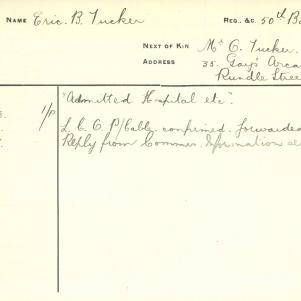 NAME Eric. B. Tucker
REG., &C. 50th Ba
NEXT OF KIN Mr C. Tucker.
ADDRESS 35. Gay's Arca
Rundle Stree
"Admitted Hospital etc".
1/P L. C. C. P/Cable. confirmed. forwarded
Reply from Commes. Information